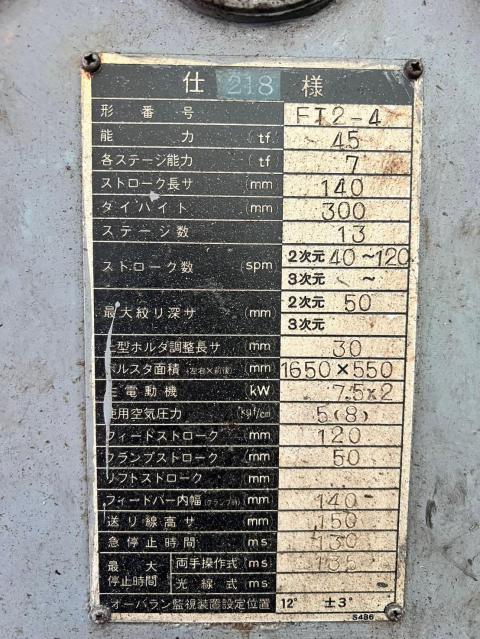 仕 218 様
形番号 FT2-4
能力 (tf) 45
各ステージ能力 (tf) 7
ストローク長サ (mm) 140
ダイハイト (mm) 300
ステージ数 13
ストローク数 (spm) 2次元 40~120
3次元 ~
最大絞り深サ (mm) 2次元 50
3次元
上型ホルダ調整長サ (mm) 30
ボルスタ面積 (左右×前後) mm 1650×550
主電動機 kW 7.5×2
使用空気圧力 (kgf/cm 5(8)
フィードストローク mm 120
クランプストローク mm 50
リフトストローク mm
フィードバー内幅 mm 140
送り線高サ mm 150
急停止時間 (ms) 130
最大停止時間 両手操作式 (ms)
光線式 (ms)
オーバラン監視装置設定位置 12° ±3°
S486